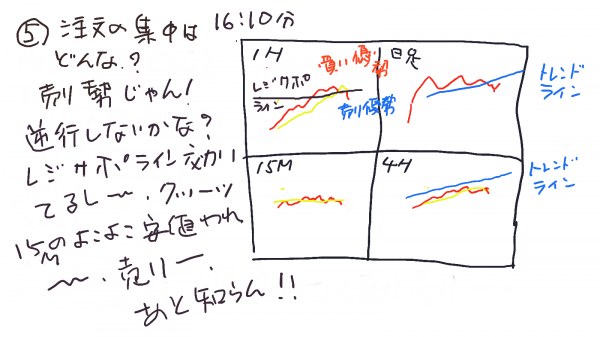 ⑤ 注文の集中は 16:10分
どんな?
売り勢じゃん!
逆行しないかな?
レジサポライン効かい
てるし〜、クソーッ
15Mのよこよこ安値われ
〜、売りー、
あと知らん!!
1H
買い優勢
レジサポ
ライン
売り優勢
日足
トレンド
ライン
15M
4H
トレンド
ライン